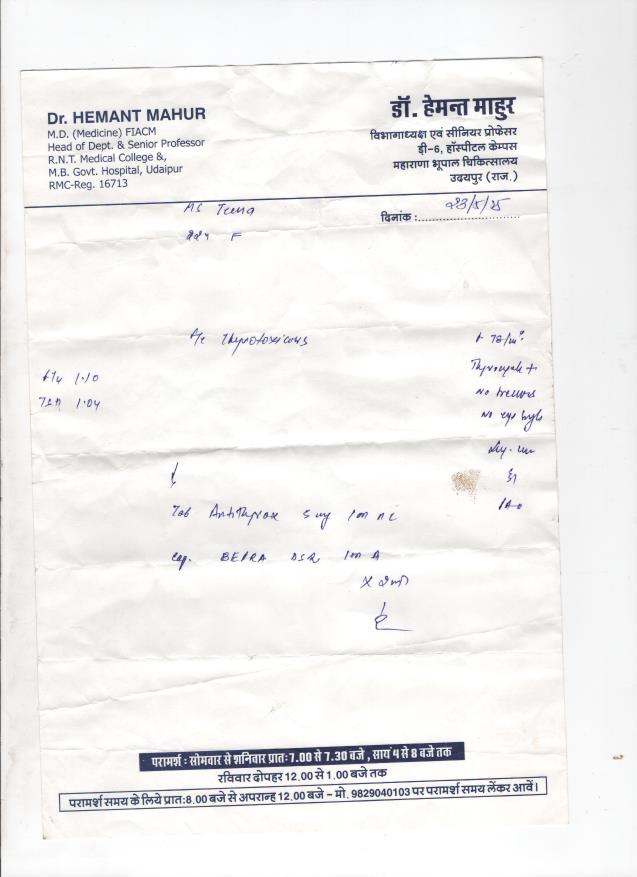 Dr. HEMANT MAHUR
M.D. (Medicine) FIACM
Head of Dept. & Senior Professor
R.N.T. Medical College &,
M.B. Govt. Hospital, Udaipur
RMC-Reg. 16713
डॉ. हेमन्त माहुर
विभागाध्यक्ष एवं सीनियर प्रोफेसर
डी-6, हॉस्पीटल केम्पस
महाराणा भूपाल चिकित्सालय
उदयपुर (राज.)
Teena
दिनांक :.............................. 23/5/25
22y F
Thyrotoxicosis
78/m
No tremors
1.10
No eye
TSH 1.04
Tab Antithyrox 5 mg
Cap. BEPRA DSR
परामर्श : सोमवार से शनिवार प्रातः7.00 से 7.30 बजे, सायं 4 से 8 बजे तक
रविवार दोपहर 12.00 से 1.00 बजे तक
परामर्श समय के लिये प्रातः8.00 बजे से अपरान्ह 12.00 बजे - मो. 9829040103 पर परामर्श समय लेंकर आवें।